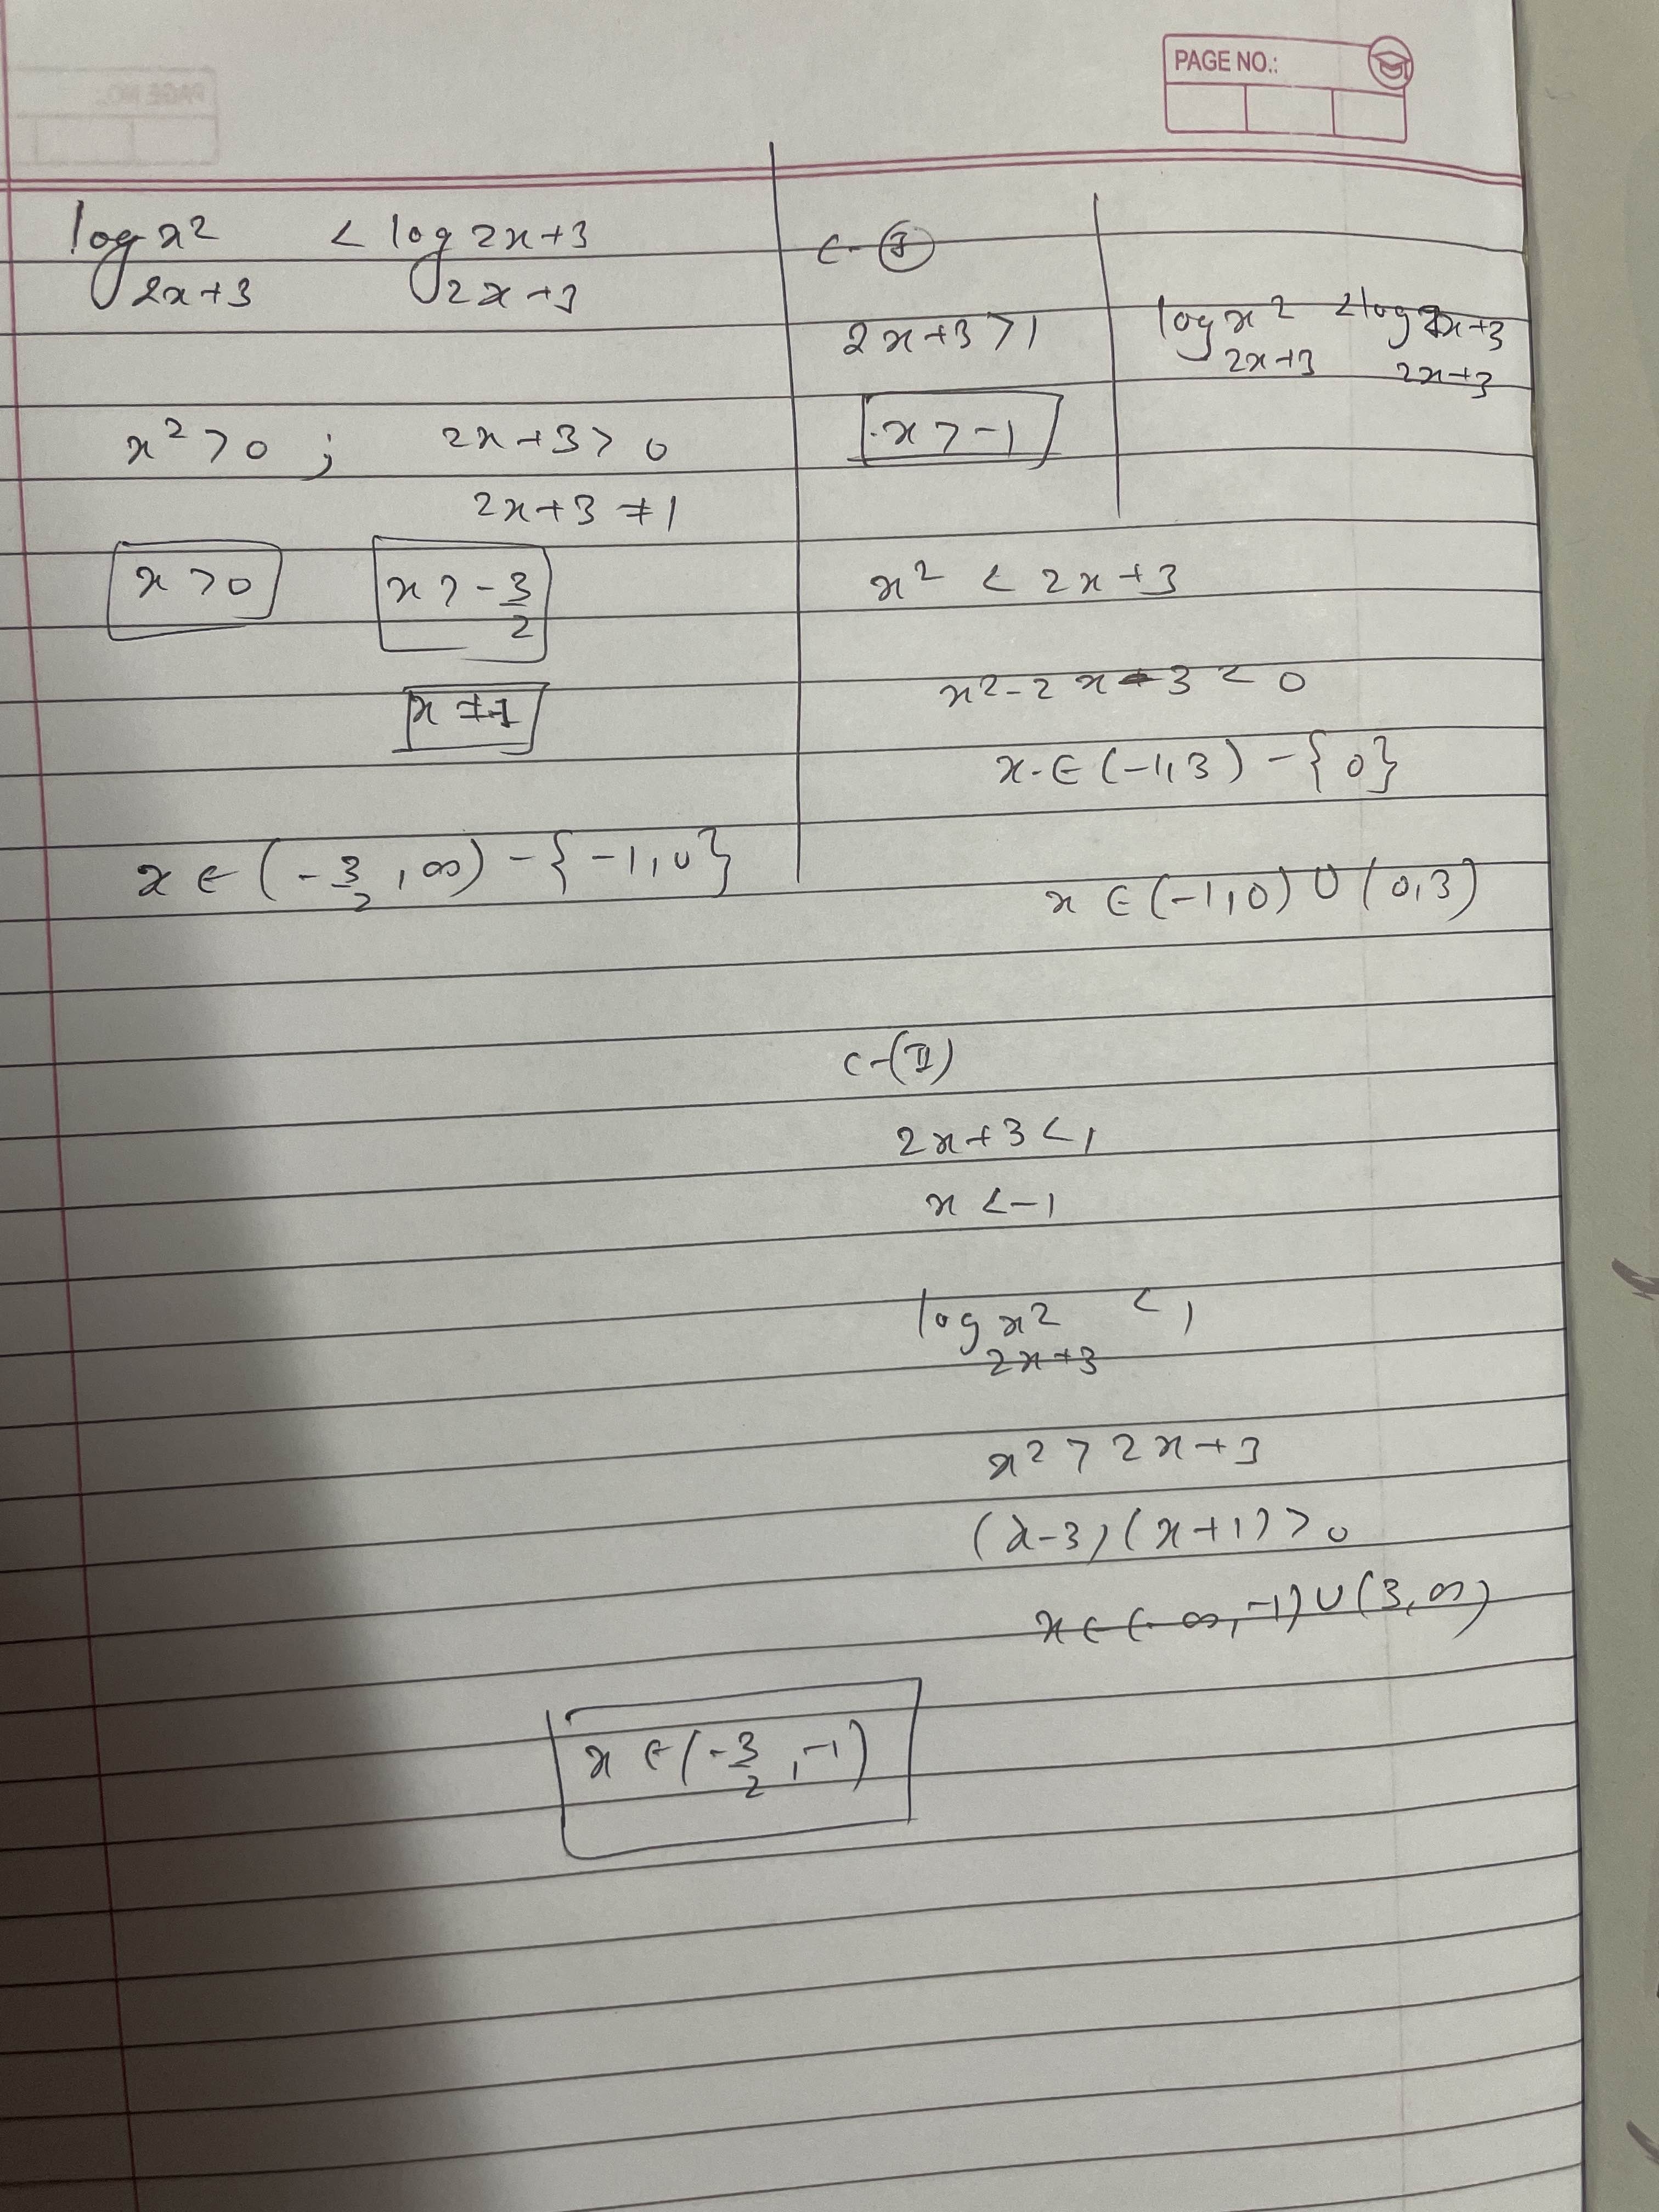 PAGE NO.:
log x² < log 2x+3
2x+3 2x+3
x² > 0 ; 2x+3 > 0
2x+3 ≠ 1
x > 0 x > -3/2
x ≠ -1
x ∈ (-3/2, ∞) - {-1, 0}
C-(I)
2x+3 > 1
x > -1
log x² < log 2x+3
2x+3 2x+3
x² < 2x+3
x² - 2x - 3 < 0
x ∈ (-1, 3) - {0}
x ∈ (-1, 0) ∪ (0, 3)
C-(II)
2x+3 < 1
x < -1
log x² < 1
2x+3
x² > 2x+3
(x-3)(x+1) > 0
x ∈ (-∞, -1) ∪ (3, ∞)
x ∈ (-3/2, -1)